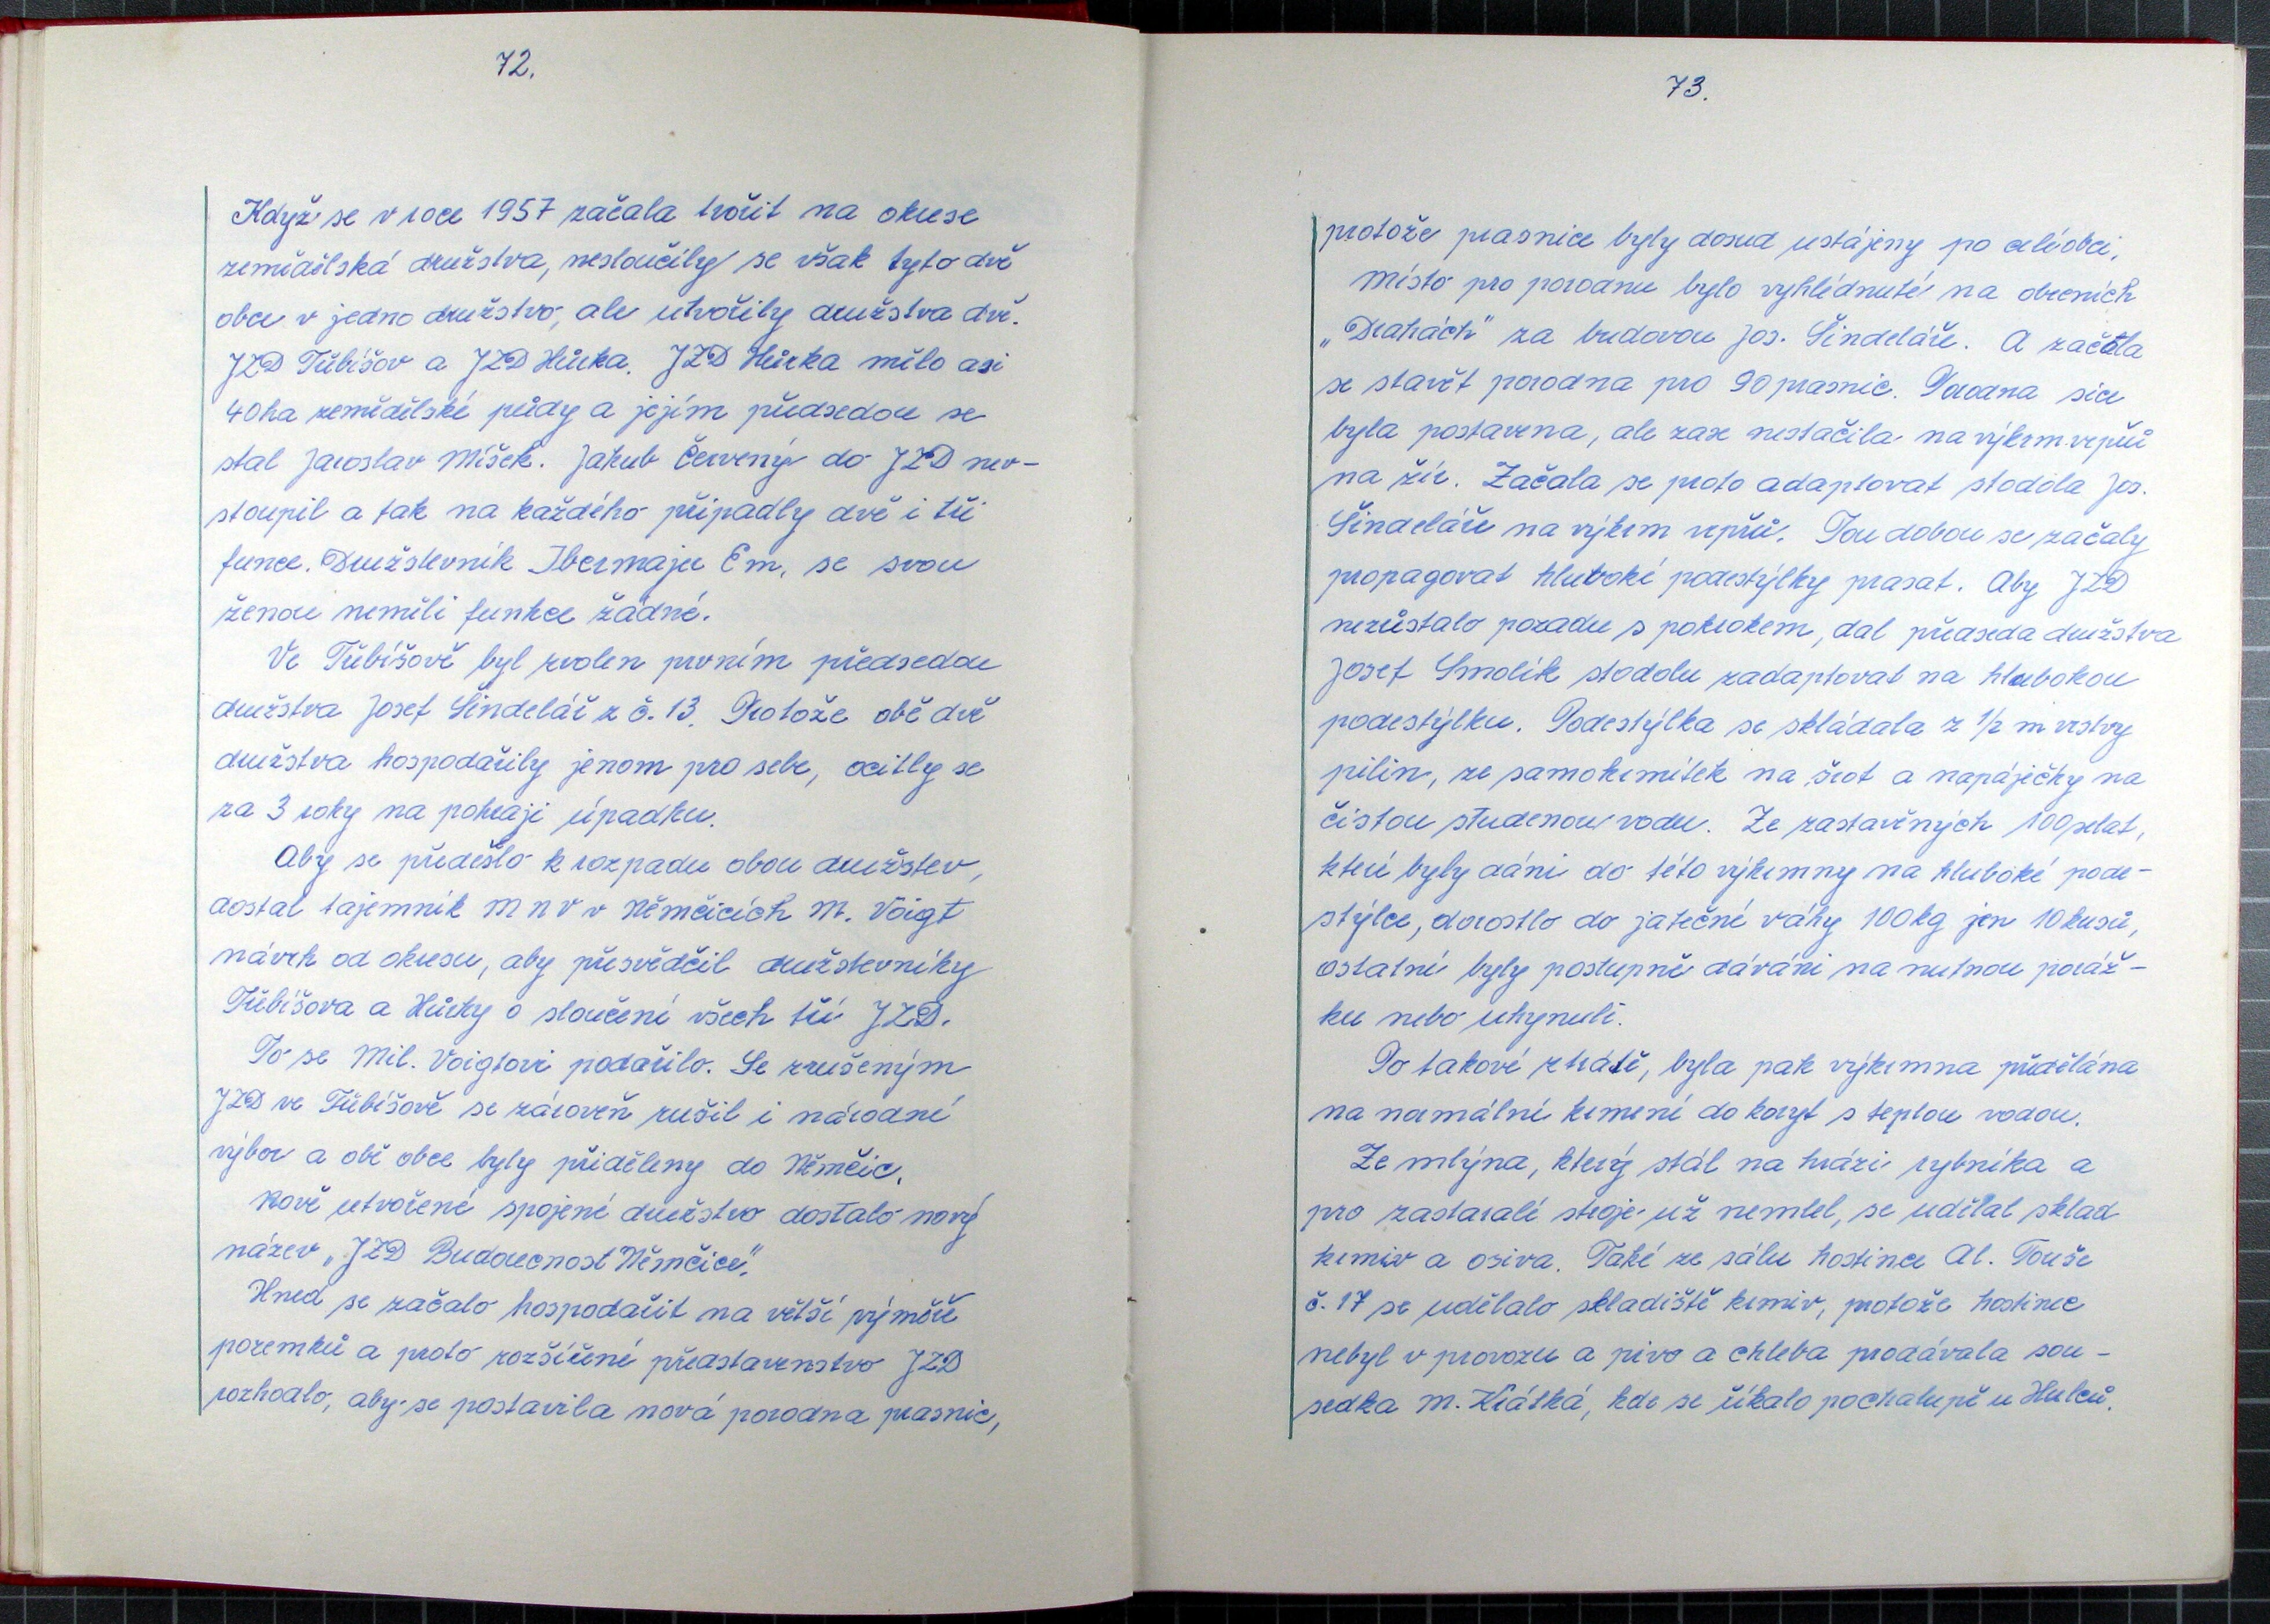 72.
Když se v roce 1957 začala tvořit na okrese
zemědělská družstva, nesloučily se však tyto dvě
obce v jedno družstvo, ale utvořily družstva dvě.
JZD Třebíšov a JZD Hůrka. JZD Hůrka mělo asi
40 ha zemědělské půdy a jejím předsedou se
stal Jaroslav Míšek. Jakub Červený do JZD nev-
stoupil a tak na každého připadly dvě i tři
funce. Družstevník Ibermajer Em. se svou
ženou neměli funkce žádné.
Ve Třebíšově byl zvolen prvním předsedou
družstva Josef Šindelář z č. 13. Protože obě dvě
družstva hospodařily jenom pro sebe, ocitly se
za 3 roky na pokraji úpadku.
Aby se předešlo k rozpadu obou družstev,
dostal tajemník MNV v Němčicích M. Voigt
návrh od okresu, aby přesvědčil družstevníky
Třebíšova a Hůrky o sloučení všech tří JZD.
To se Mil. Voigtovi podařilo. Se zrušeným
JZD ve Třebíšově se zároveň rušil i národní
výbor a obě obce byly přiděleny do Němčic.
Nově utvořené spojené družstvo dostalo nový
název „JZD Budoucnost Němčice".
Hned se začalo hospodařit na větší výměře
pozemků a proto rozšířené představenstvo JZD
rozhodlo, aby se postavila nová porodna prasnic,
73.
protože prasnice byly dosud ustájeny po celé obci.
Místo pro porodnu bylo vyhlédnuté na obecních
„Drahách" za budovou Jos. Šindeláře. A začala
se stavět porodna pro 90 prasnic. Porodna sice
byla postavena, ale zase nestačila na výkrm vepřů
na žír. Začala se proto adaptovat stodola Jos.
Šindeláře na výkrm vepřů. Tou dobou se začaly
propagovat hluboké podestýlky prasat. Aby JZD
nezůstalo pozadu s pokrokem, dal předseda družstva
Josef Smolík stodolu zadaptovat na hlubokou
podestýlku. Podestýlka se skládala z 1/2 m vrstvy
pilin, ze samokrmítek na šrot a napáječky na
čistou studenou vodu. Ze zastavěných 100 selat,
které byly dáni do této výkrmny na hluboké pode-
stýlce, dorostlo do jatečné váhy 100 kg jen 10 kusů,
ostatní byly postupně dáváni na nutnou poráž-
ku nebo uhynuli.
Po takové ztrátě, byla pak výkrmna předělána
na normální krmení do koryt s teplou vodou.
Ze mlýna, který stál na hrázi rybníka a
pro zastaralé stroje už nemlel, se udělal sklad
krmiv a osiva. Také ze sálu hostince Al. Touše
č. 17 se udělalo skladiště krmiv, protože hostinec
nebyl v provozu a pivo a chleba prodávala sou-
sedka M. Krátká, kde se říkalo po chalupě u Hulců.